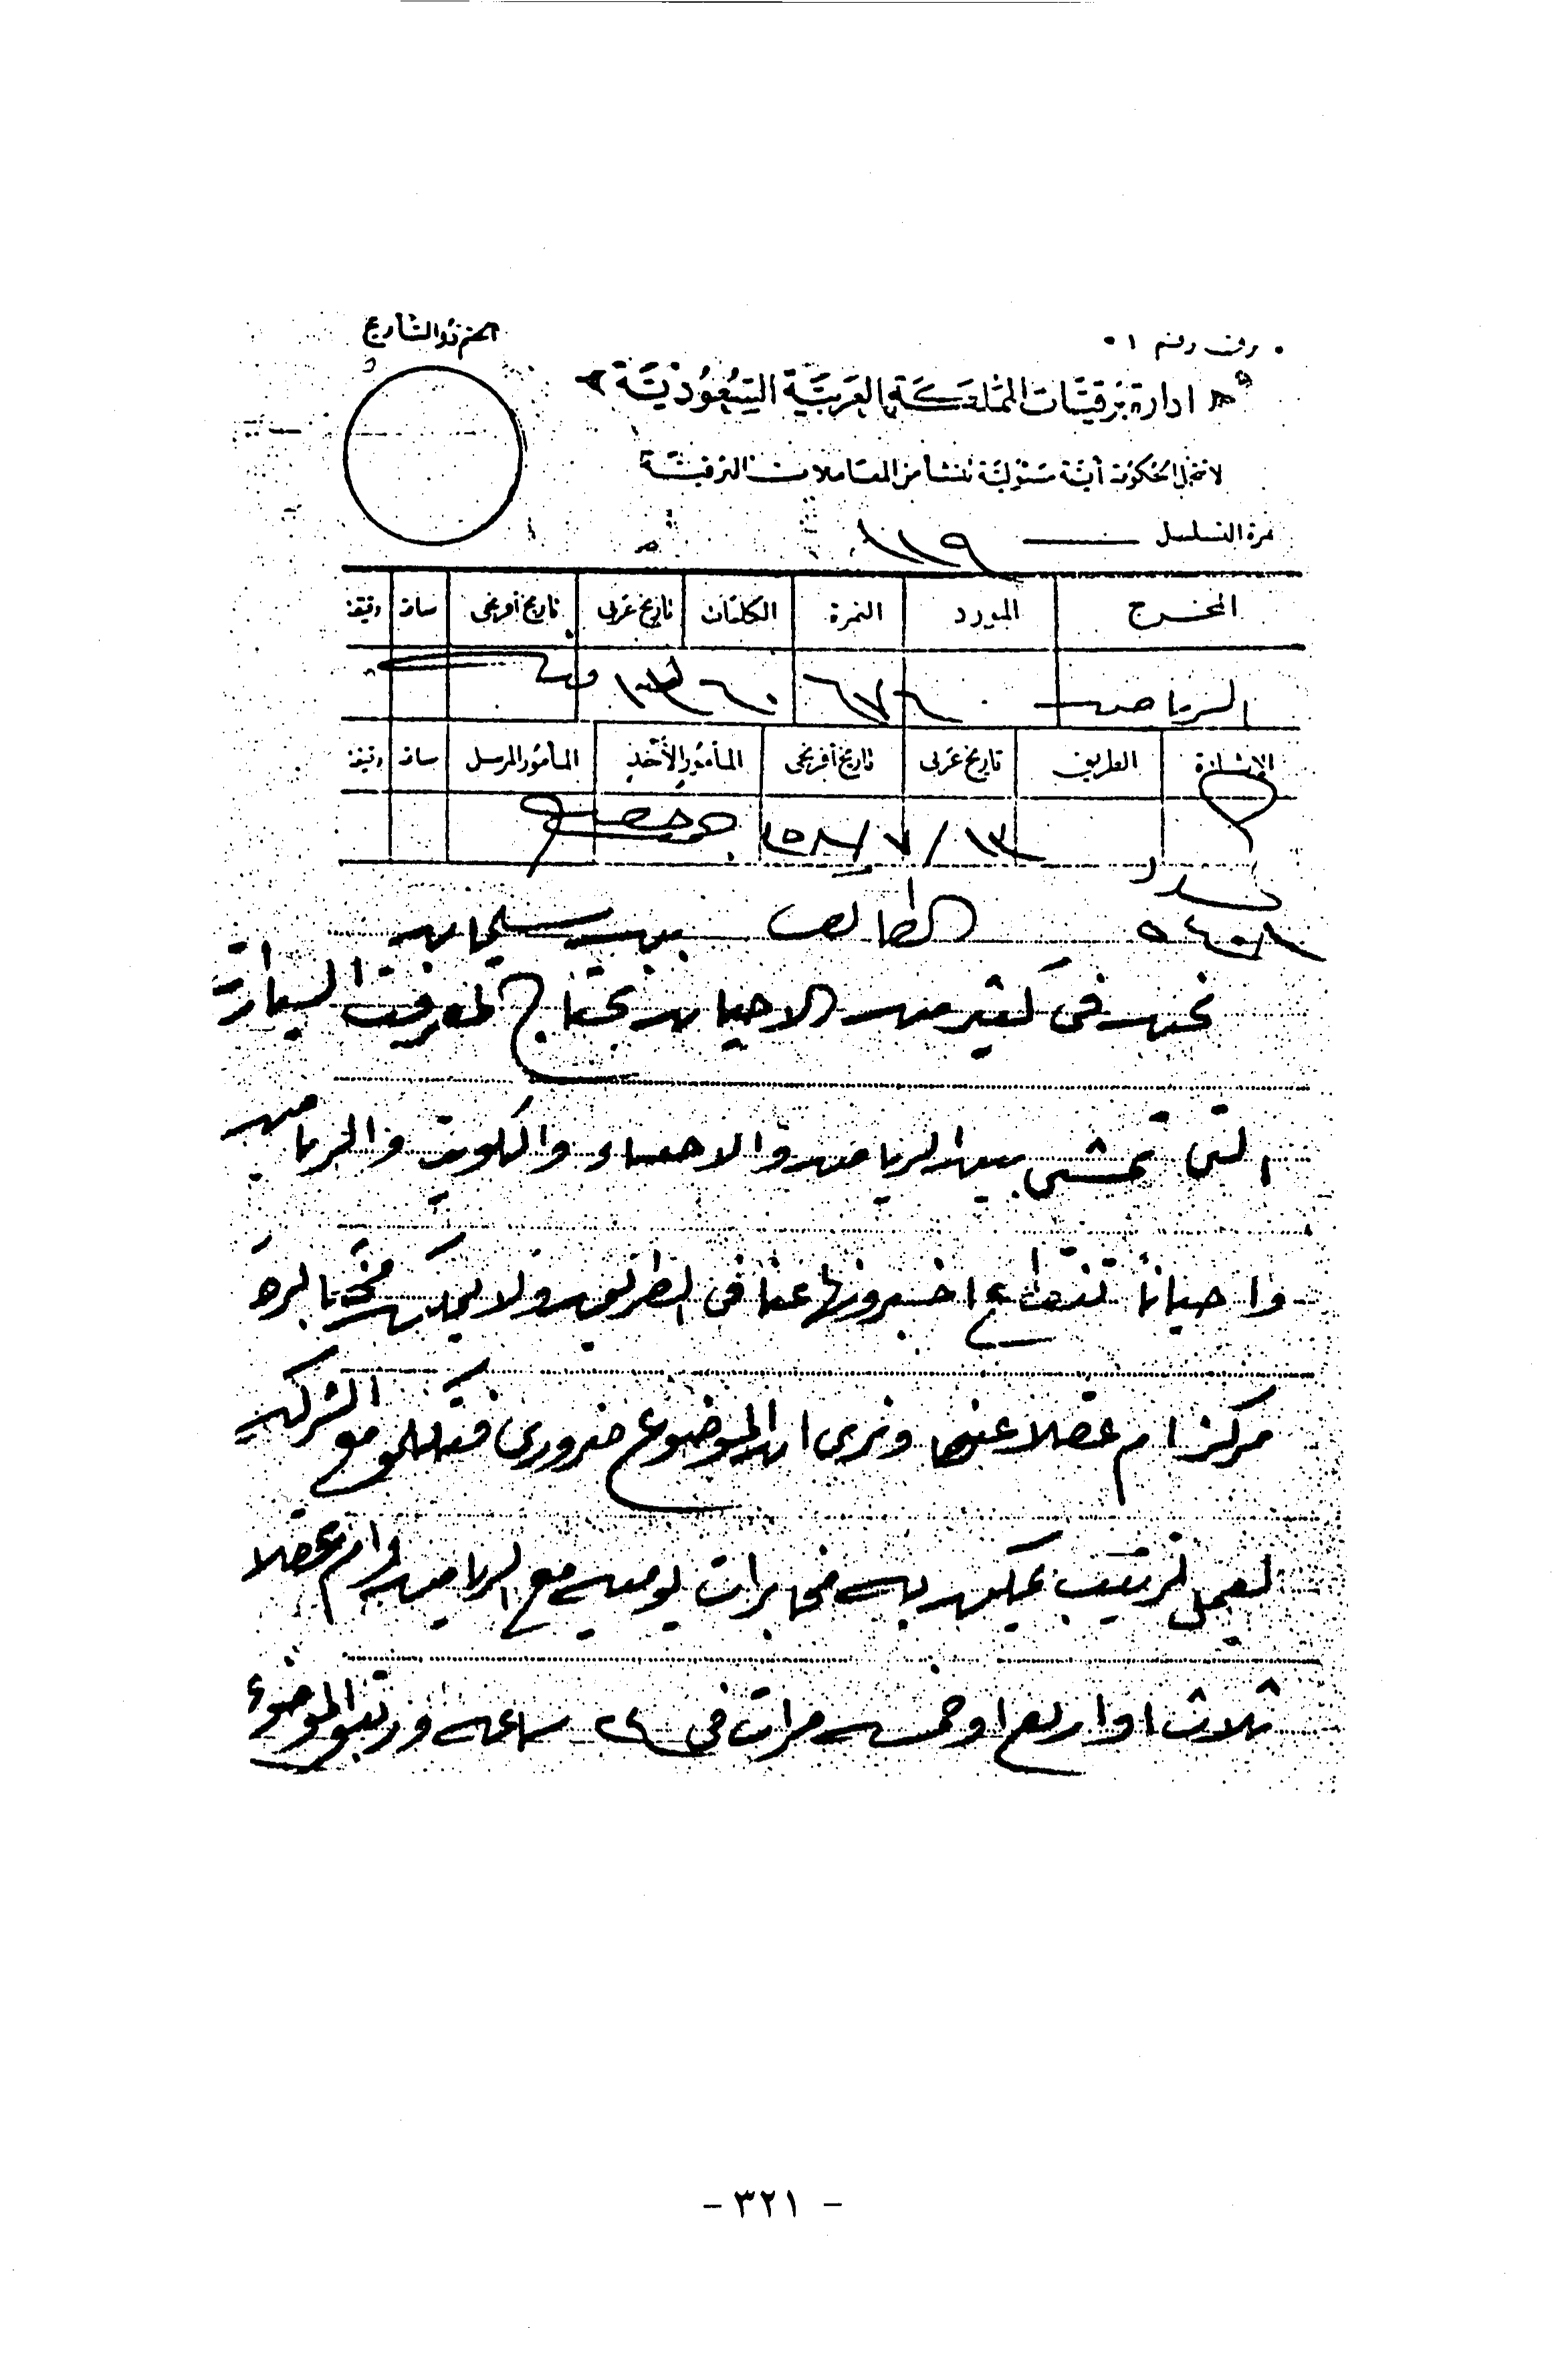 برق رقم ١
الختم ذو التاريخ
ادارة برقيات المملكة العربية السعودية
لا تتحمل الحكومة أية مسئولية تنشأ من المعاملات البرقية
نمرة التسلسل ١١٩
المخرج المورد النمرة الكلمات تاريخ عربى تاريخ أفرنجى ساعة دقيقة
الرياض ٦٧٦ ٦٠
الإشارة الطريق تاريخ عربى تاريخ أفرنجى المأمور الآخذ المأمور المرسل ساعة دقيقة
١٣ / ٧ / ٥٨
٥٤٠٨ الطائف بن سليمان
نحن فى كثير من الاحيان نحتاج لمعرفت السيارات
التى تمشى بين الرياض والاحساء والكويت والرياض
واحيانا تنقطع اخبرونها عنا فى الطريق ولا يمكن مخابره
مركز ام عقلا عنها ونرى ان الموضوع ضرورى فتكلمو مع الشركه
لعمل ترتيب يمكن به مخابرات يوميه مع الرياض وام عقلا
ثلاث او اربع او خمسه مرات فى ٢٤ ساعه ورتبو الموضوع
- ٣٢١ -